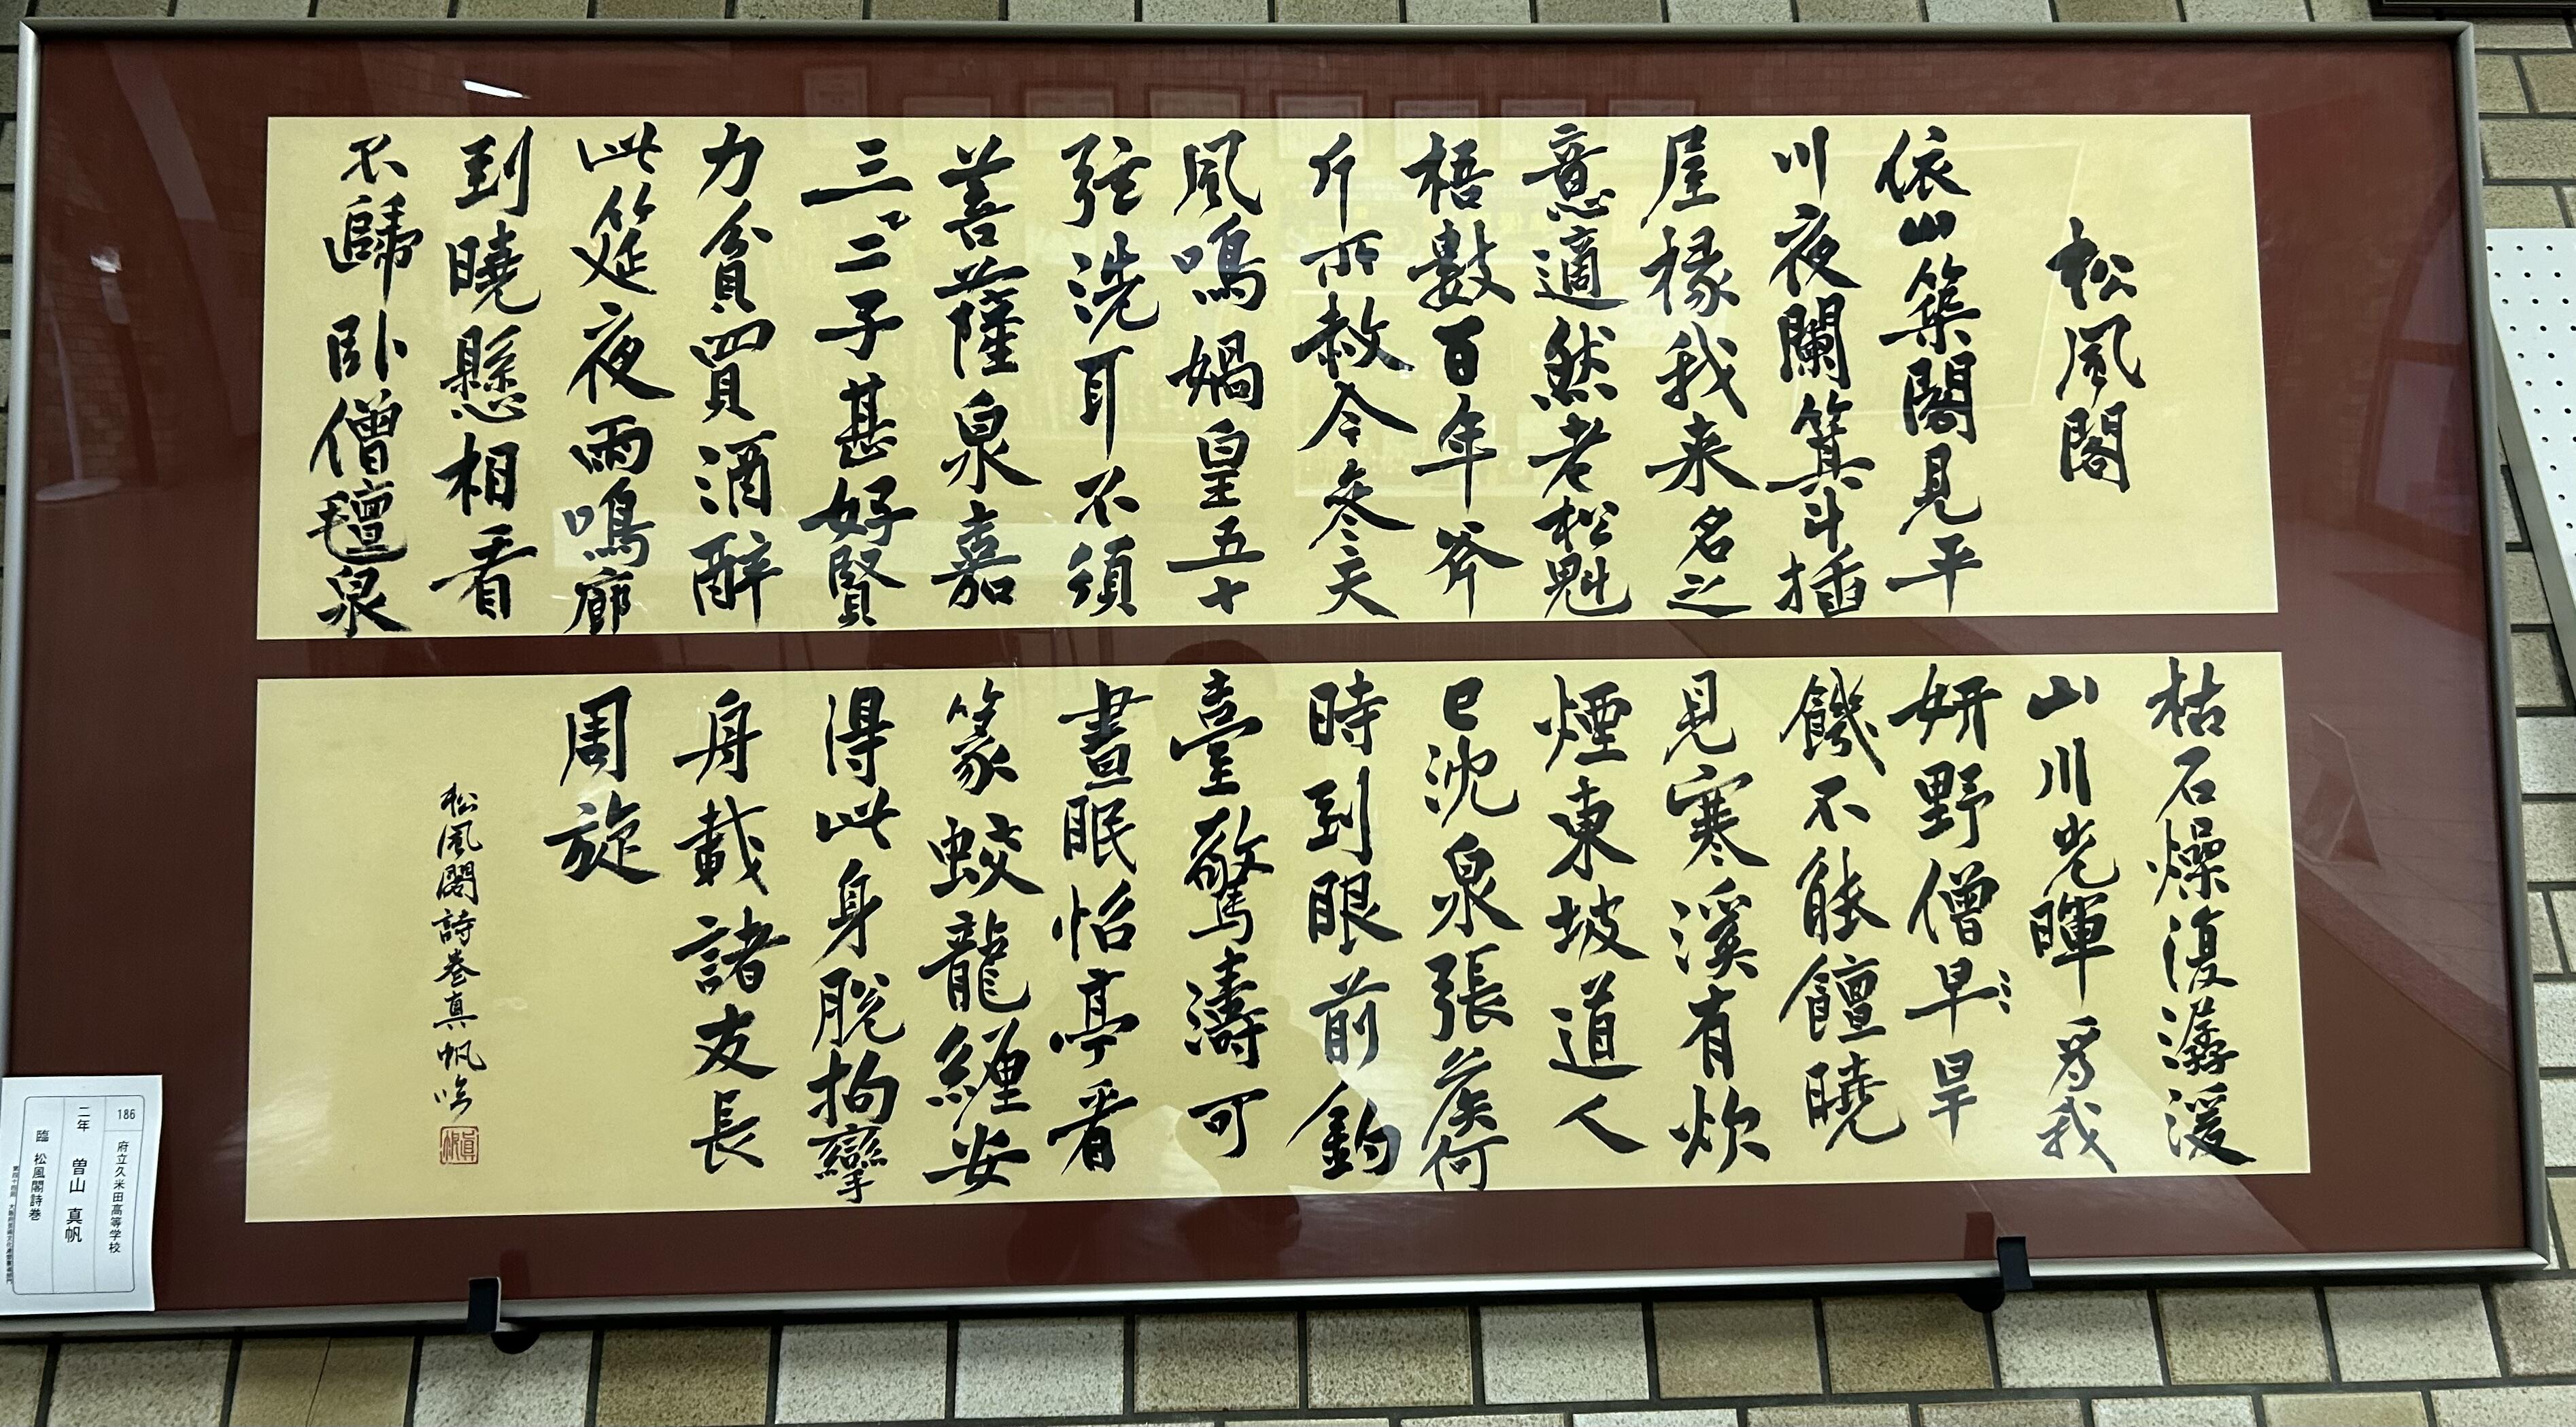 松風閣
依山築閣見平
川夜闌箕斗插
屋椽我来名之
意適然老松魁
梧數百年斧
斤所赦今参天
風鳴媧皇五十
弦洗耳不須
菩薩泉嘉
三〻二子甚好賢
力貧買酒醉
此筵夜雨鳴廊
到曉懸相看
不歸臥僧氊泉
枯石燥復潺湲
山川光暉為我
妍野僧早〻旱
饑不能饘曉
見寒溪有炊
煙東坡道人
已沈泉張侯何
時到眼前釣
臺驚濤可
晝眠怡亭看
篆蛟龍纏安
得此身脱拘攣
舟載諸友長
周旋
松風閣詩巻真帆臨
眞帆
186 府立久米田高等学校
二年 曽山 真帆
臨 松風閣詩巻